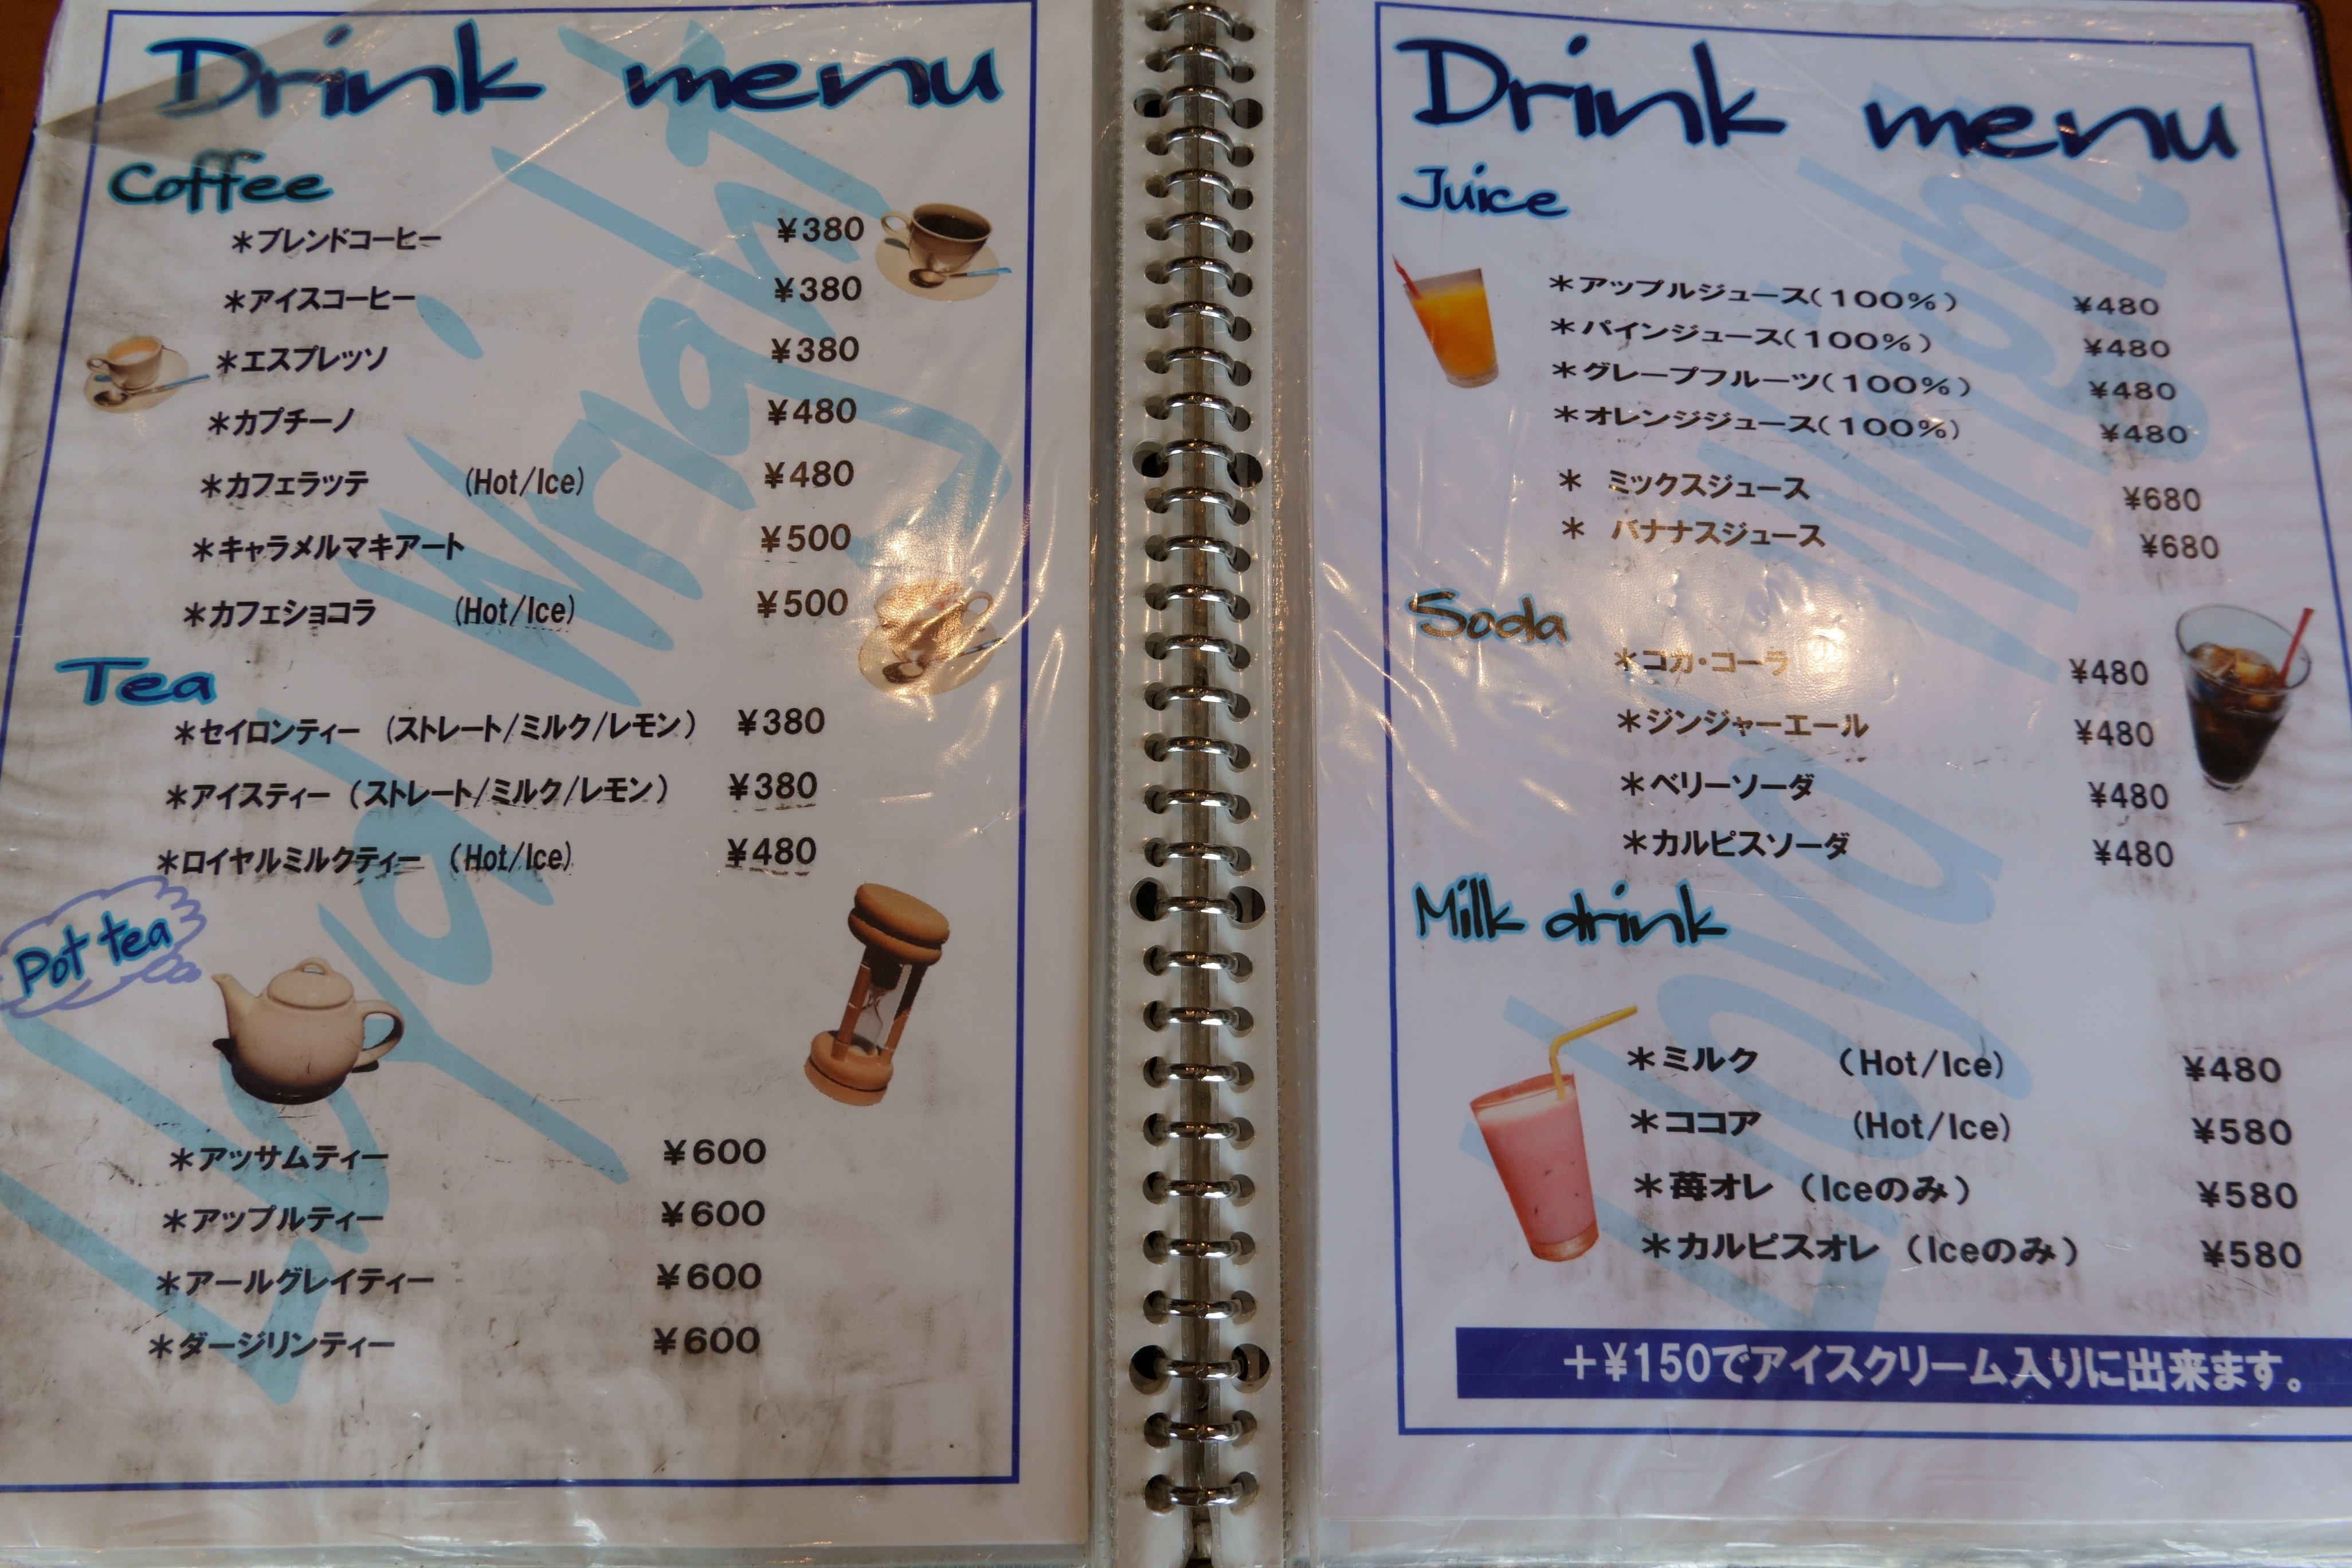 Drink menu
Coffee
＊ブレンドコーヒー ¥380
＊アイスコーヒー ¥380
＊エスプレッソ ¥380
＊カプチーノ ¥480
＊カフェラッテ (Hot/Ice) ¥480
＊キャラメルマキアート ¥500
＊カフェショコラ (Hot/Ice) ¥500
Tea
＊セイロンティー (ストレート/ミルク/レモン) ¥380
＊アイスティー (ストレート/ミルク/レモン) ¥380
＊ロイヤルミルクティー (Hot/Ice) ¥480
Pot tea
＊アッサムティー ¥600
＊アップルティー ¥600
＊アールグレイティー ¥600
＊ダージリンティー ¥600
Loyal Wright
Drink menu
Juice
＊アップルジュース(100%) ¥480
＊パインジュース(100%) ¥480
＊グレープフルーツ(100%) ¥480
＊オレンジジュース(100%) ¥480
＊ ミックスジュース ¥680
＊ バナナスジュース ¥680
Soda
＊コカ・コーラ ¥480
＊ジンジャーエール ¥480
＊ベリーソーダ ¥480
＊カルピスソーダ ¥480
Milk drink
＊ミルク (Hot/Ice) ¥480
＊ココア (Hot/Ice) ¥580
＊苺オレ (Iceのみ) ¥580
＊カルピスオレ (Iceのみ) ¥580
＋¥150でアイスクリーム入りに出来ます。
Loyal Wright